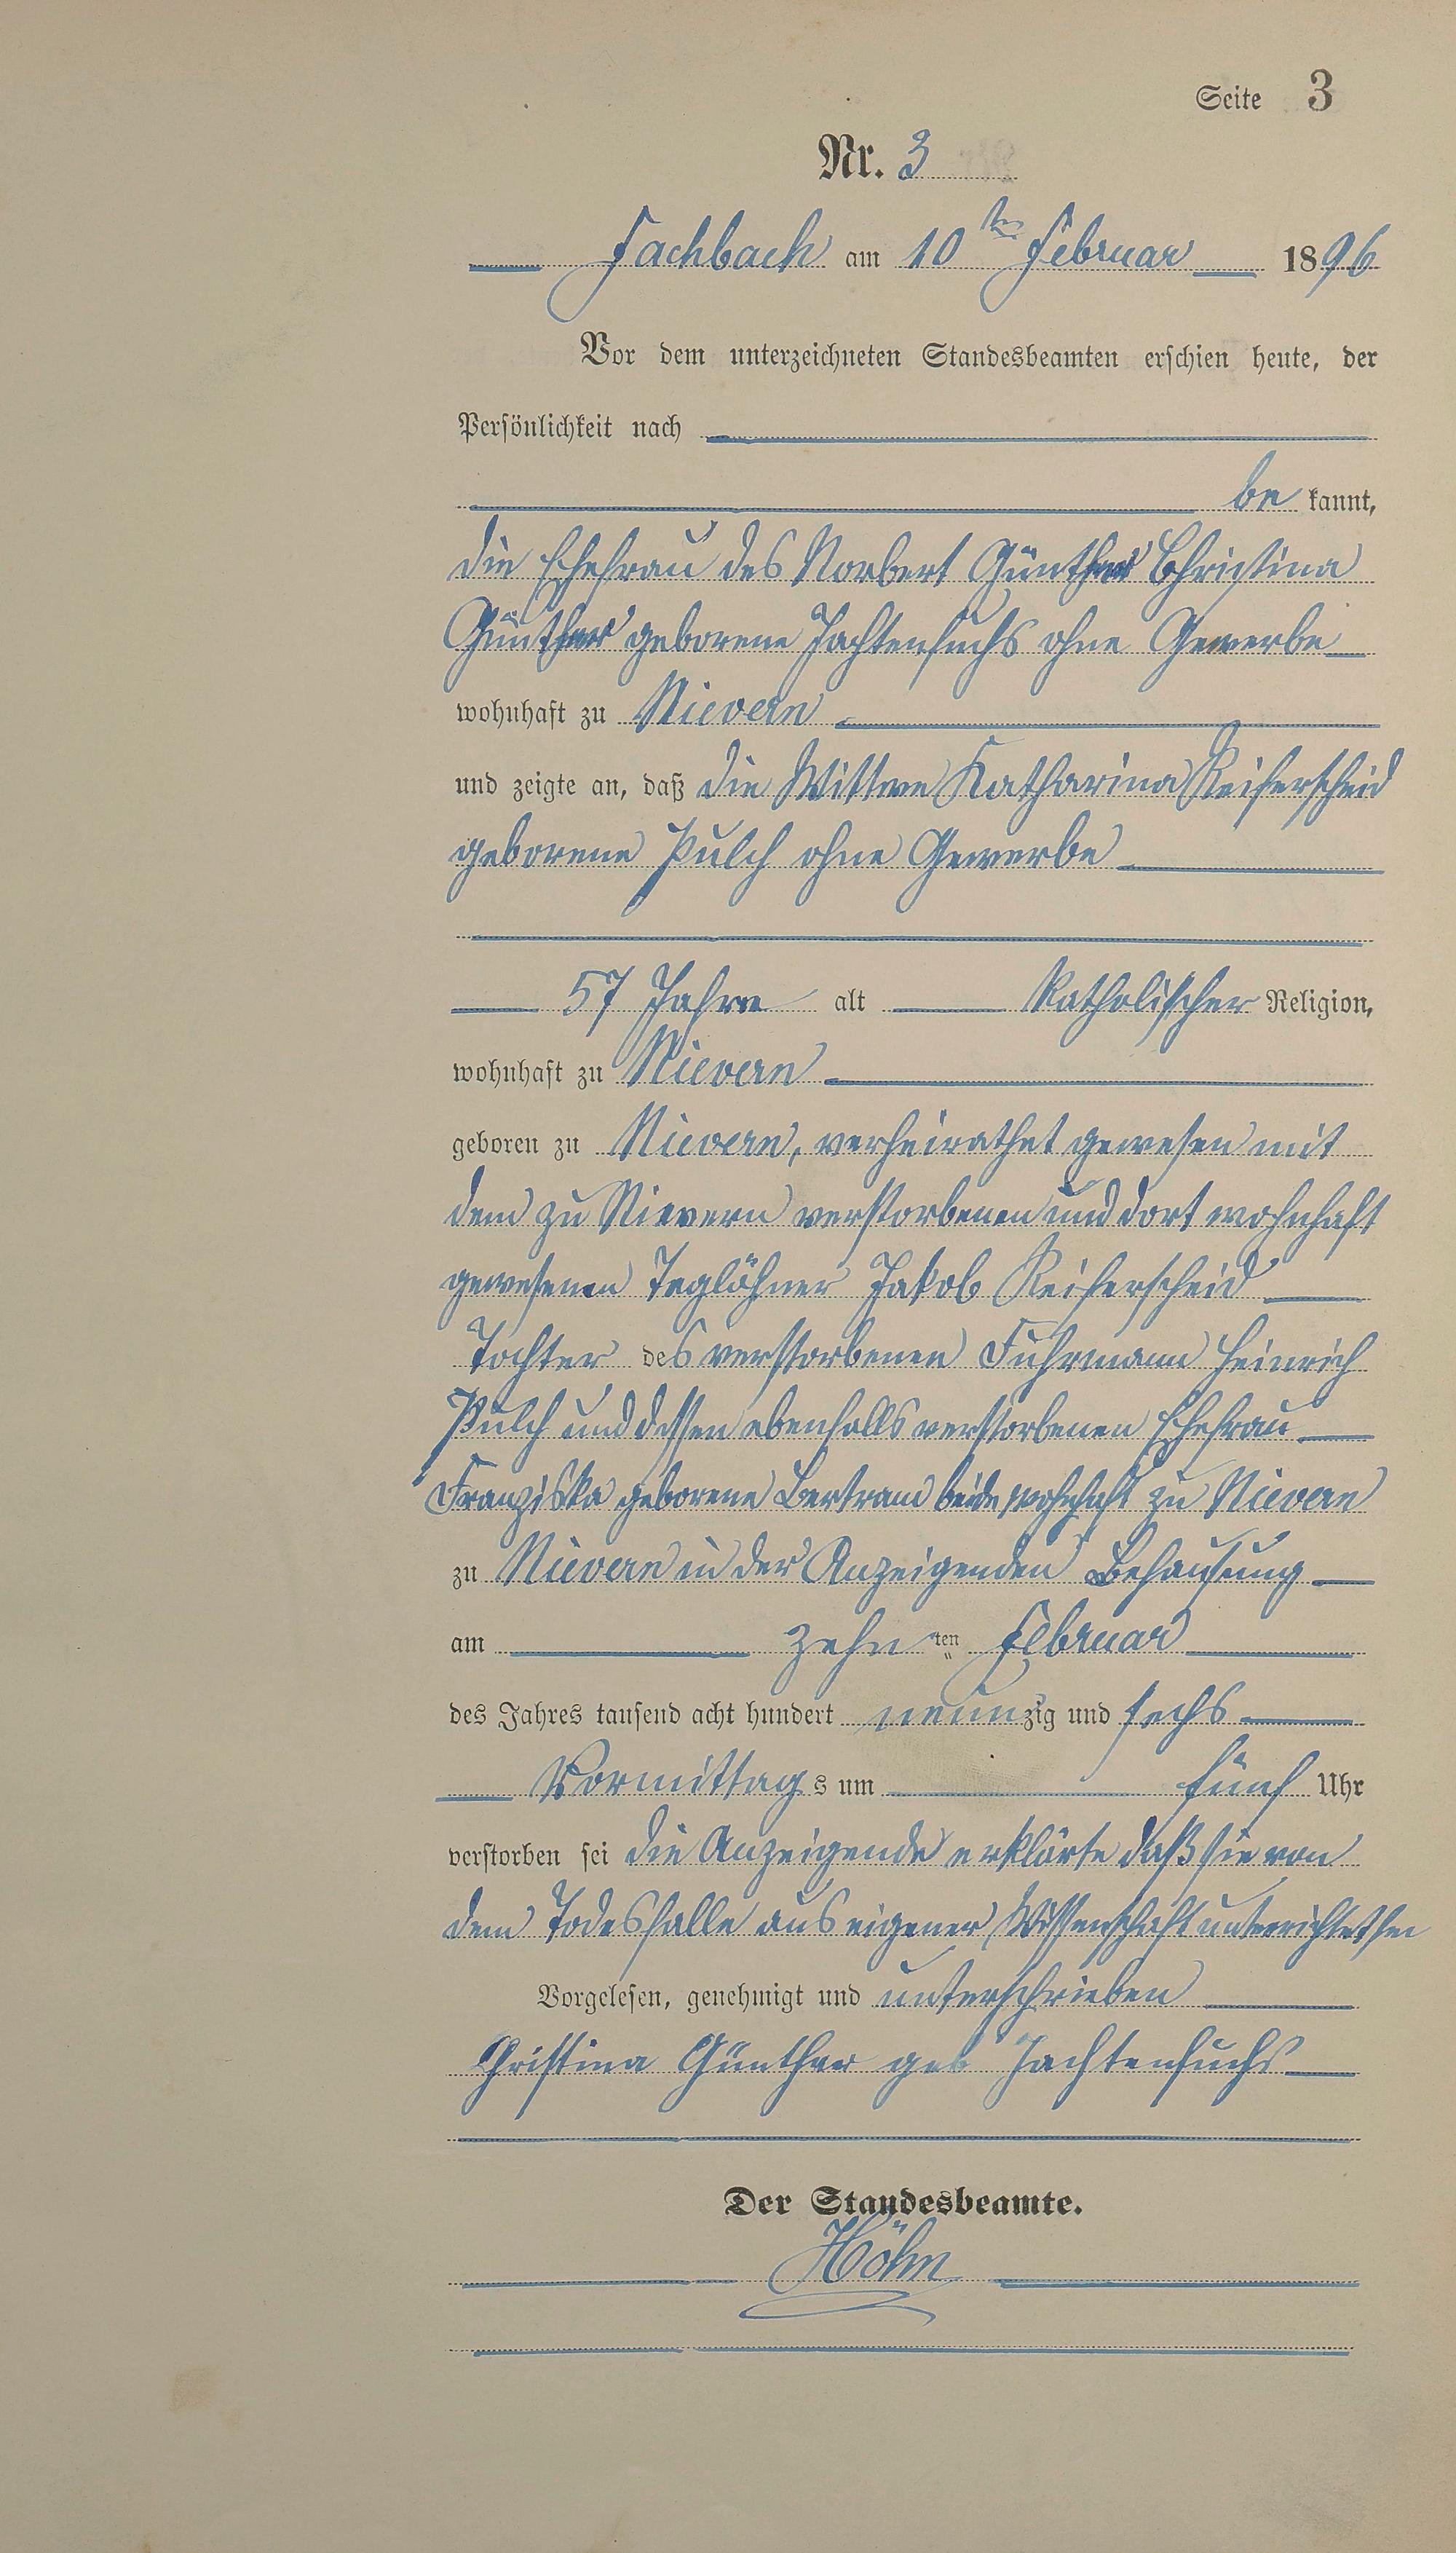 Seite 3
Nr. 3
Fachbach am 10ten Februar 1896
Vor dem unterzeichneten Standesbeamten erschien heute, der
Persönlichkeit nach
be kannt,
die Ehefrau des Norbert Günther Christina
Günther geborene Jachtenfuchs ohne Gewerbe
wohnhaft zu Nievern
und zeigte an, daß die Wittwe Katharina Reiferscheid
geborene Pulch ohne Gewerbe
57 Jahre alt katholischer Religion,
wohnhaft zu Nievern
geboren zu Nievern, verheirathet gewesen mit
dem zu Nievern verstorbenen und dort wohnhaft
gewesenen Taglöhner Jakob Reiferscheid
Tochter des verstorbenen Fuhrmann Heinrich
Pulch und dessen ebenfalls verstorbenen Ehefrau
Franziska geborene Bertram beide wohnhaft zu Nievern
zu Nievern in der Anzeigenden Behausung
am zehn ten Februar
des Jahres tausend acht hundert neunzig und sechs
Vormittags um fünf Uhr
verstorben sei die Anzeigende erklärte daß sie von
dem Todesfalle aus eigener Wissenschaft unterrichtet sei
Vorgelesen, genehmigt und unterschrieben
Christina Günther geb Jachtenfuchs
Der Standesbeamte.